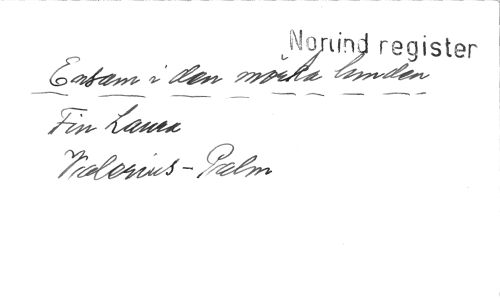 Norlind register
Ensam i den mörka lunden
Fin Laura
Valerius-Palm